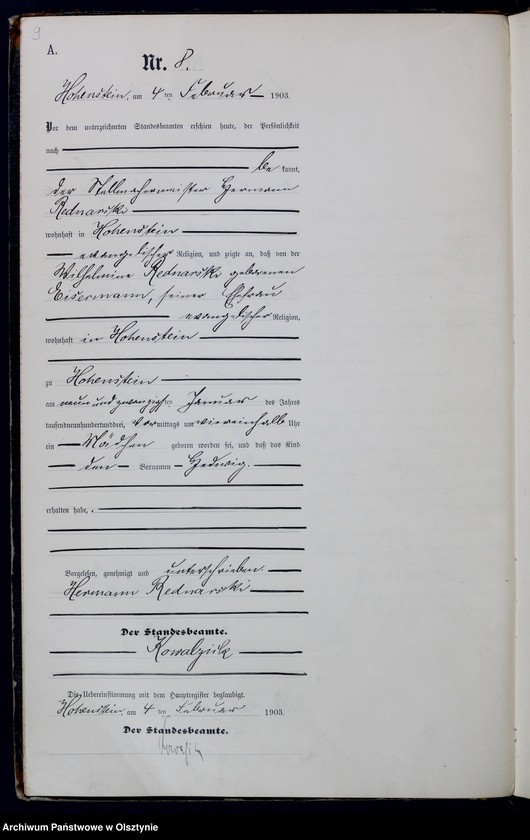 9
A.
Nr. 8.
Hohenstein, am 4 ten Februar 1903.
Vor dem unterzeichneten Standesbeamten erschien heute, der Persönlichkeit
nach
be kannt,
der Stellmachermeister Hermann
Rednarski
wohnhaft in Hohenstein
evangelischer Religion, und zeigte an, daß von der
Wilhelmine Rednarski geborenen
Eisermann, seiner Ehefrau
evangelischer Religion,
wohnhaft in Hohenstein
zu Hohenstein
am neun und zwanzigsten Januar des Jahres
tausendneunhundertunddrei, Vormittags um viereinhalb Uhr
ein Mädchen geboren worden sei, und daß das Kind
den Vornamen Hedwig.
erhalten habe.
Vorgelesen, genehmigt und unterschrieben.
Hermann Rednarski
Der Standesbeamte.
Kowalzik
Die Uebereinstimmung mit dem Hauptregister beglaubigt.
Hohenstein, am 4 ten Februar 1903.
Der Standesbeamte.
Archiwum Państwowe w Olsztynie